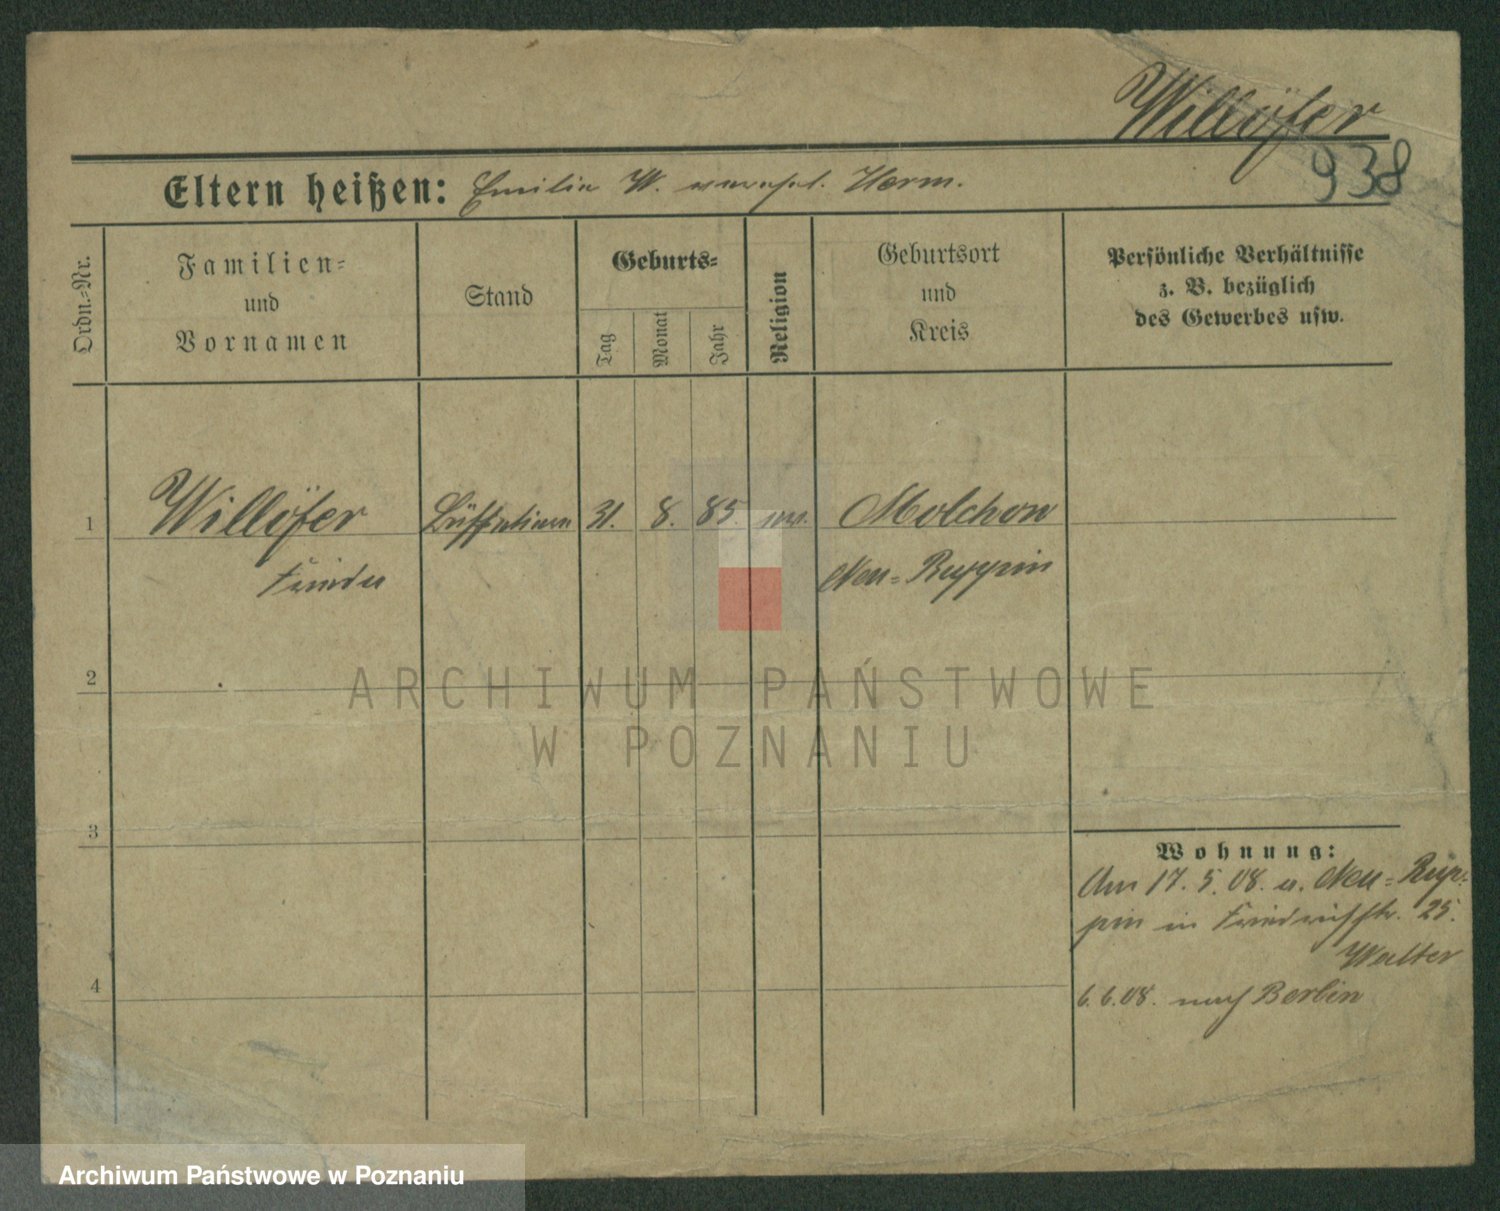 Willöfer
938
Eltern heißen: Emilie W. verehel. Herm.
Ordn.-Nr.
Familien-
und
Vornamen
Stand
Geburts-
Tag
Monat
Jahr
Religion
Geburtsort
und
Kreis
Persönliche Verhältnisse
z. B. bezüglich
des Gewerbes usw.
1 Willöfer 31. 8. 85. ev. Molchow
Frieda Neu-Ruppin
2
3
4
Wohnung:
Am 17. 5. 08. v. Neu-Rup-
pin in Friedrichstr. 25.
Walter
6.6.08. nach Berlin
ARCHIWUM PAŃSTWOWE
W POZNANIU
Archiwum Państwowe w Poznaniu